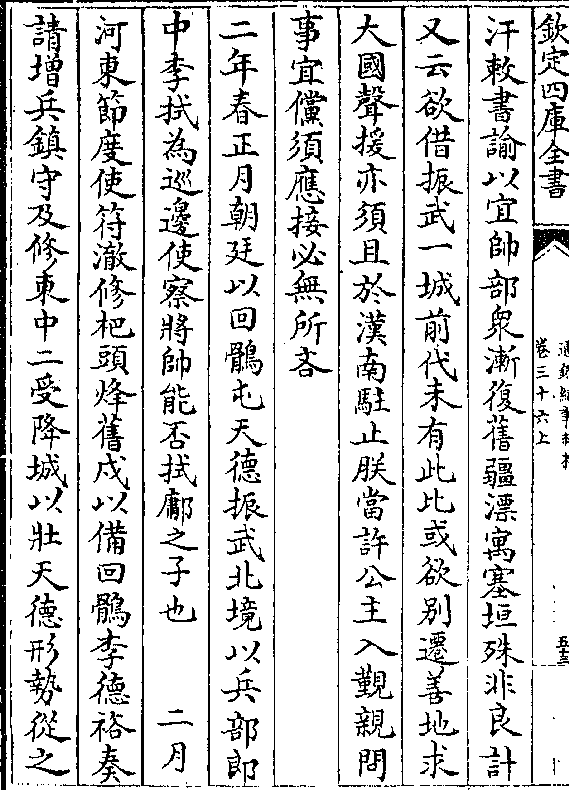 欽定四庫全書
通鑑紀事本末
卷三十六上
五十三
汗敕書諭以宜帥部衆漸復舊疆漂寓塞垣殊非良計
又云欲借振武一城前代未有此比或欲别遷善地求
大國聲援亦須且於漠南駐止朕當許公主入覲親問
事宜儻須應接必無所吝
二年春正月朝廷以回鶻屯天德振武北境以兵部郎
中李拭為巡邊使察將帥能否拭鄘之子也　二月
河東節度使符澈修杷頭烽舊戍以備回鶻李德裕奏
請增兵鎮守及修東中二受降城以壯天德形勢從之